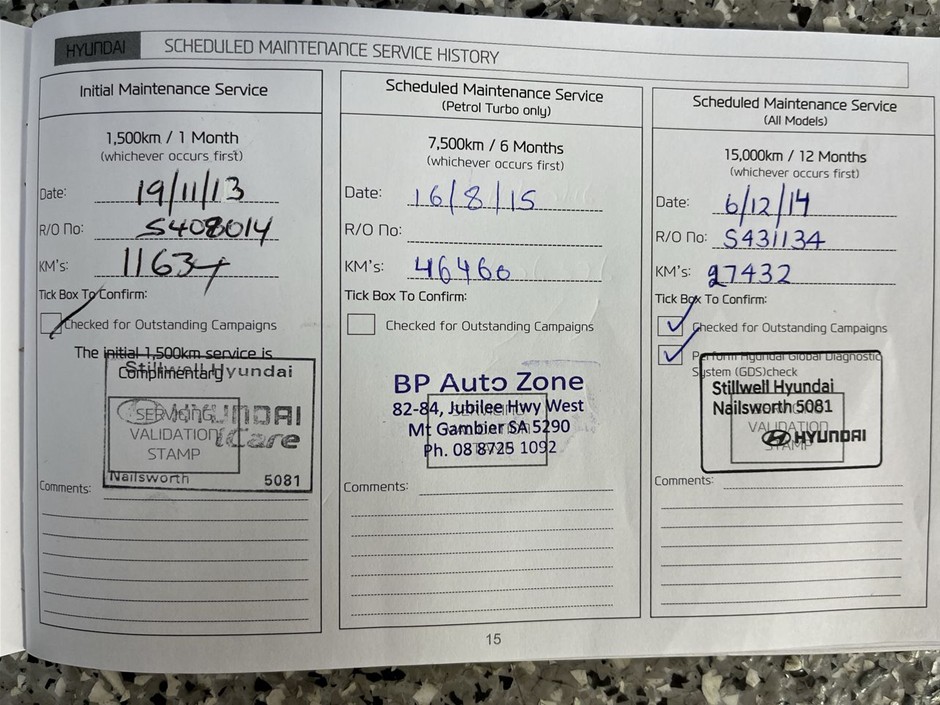 HYUNDAI SCHEDULED MAINTENANCE SERVICE HISTORY
Initial Maintenance Service
1,500km / 1 Month
(whichever occurs first)
Date: 19/11/13
R/O No: S408014
KM's: 11634
Tick Box To Confirm:
Checked for Outstanding Campaigns
The initial 1,500km service is
Complimentary
Stillwell Hyundai
HYUNDAI
iCare
SERVICING
VALIDATION
STAMP
Nailsworth 5081
Comments:
Scheduled Maintenance Service
(Petrol Turbo only)
7,500km / 6 Months
(whichever occurs first)
Date: 16/8/15
R/O No:
KM's: 46460
Tick Box To Confirm:
Checked for Outstanding Campaigns
BP Auto Zone
82-84, Jubilee Hwy West
Mt Gambier SA 5290
Ph. 08 8725 1092
Comments:
Scheduled Maintenance Service
(All Models)
15,000km / 12 Months
(whichever occurs first)
Date: 6/12/14
R/O No: S431134
KM's: 27432
Tick Box To Confirm:
Checked for Outstanding Campaigns
Perform Hyundai Global Diagnostic
System (GDS)check
Stillwell Hyundai
Nailsworth 5081
VALIDATION
STAMP
HYUNDAI
Comments:
15